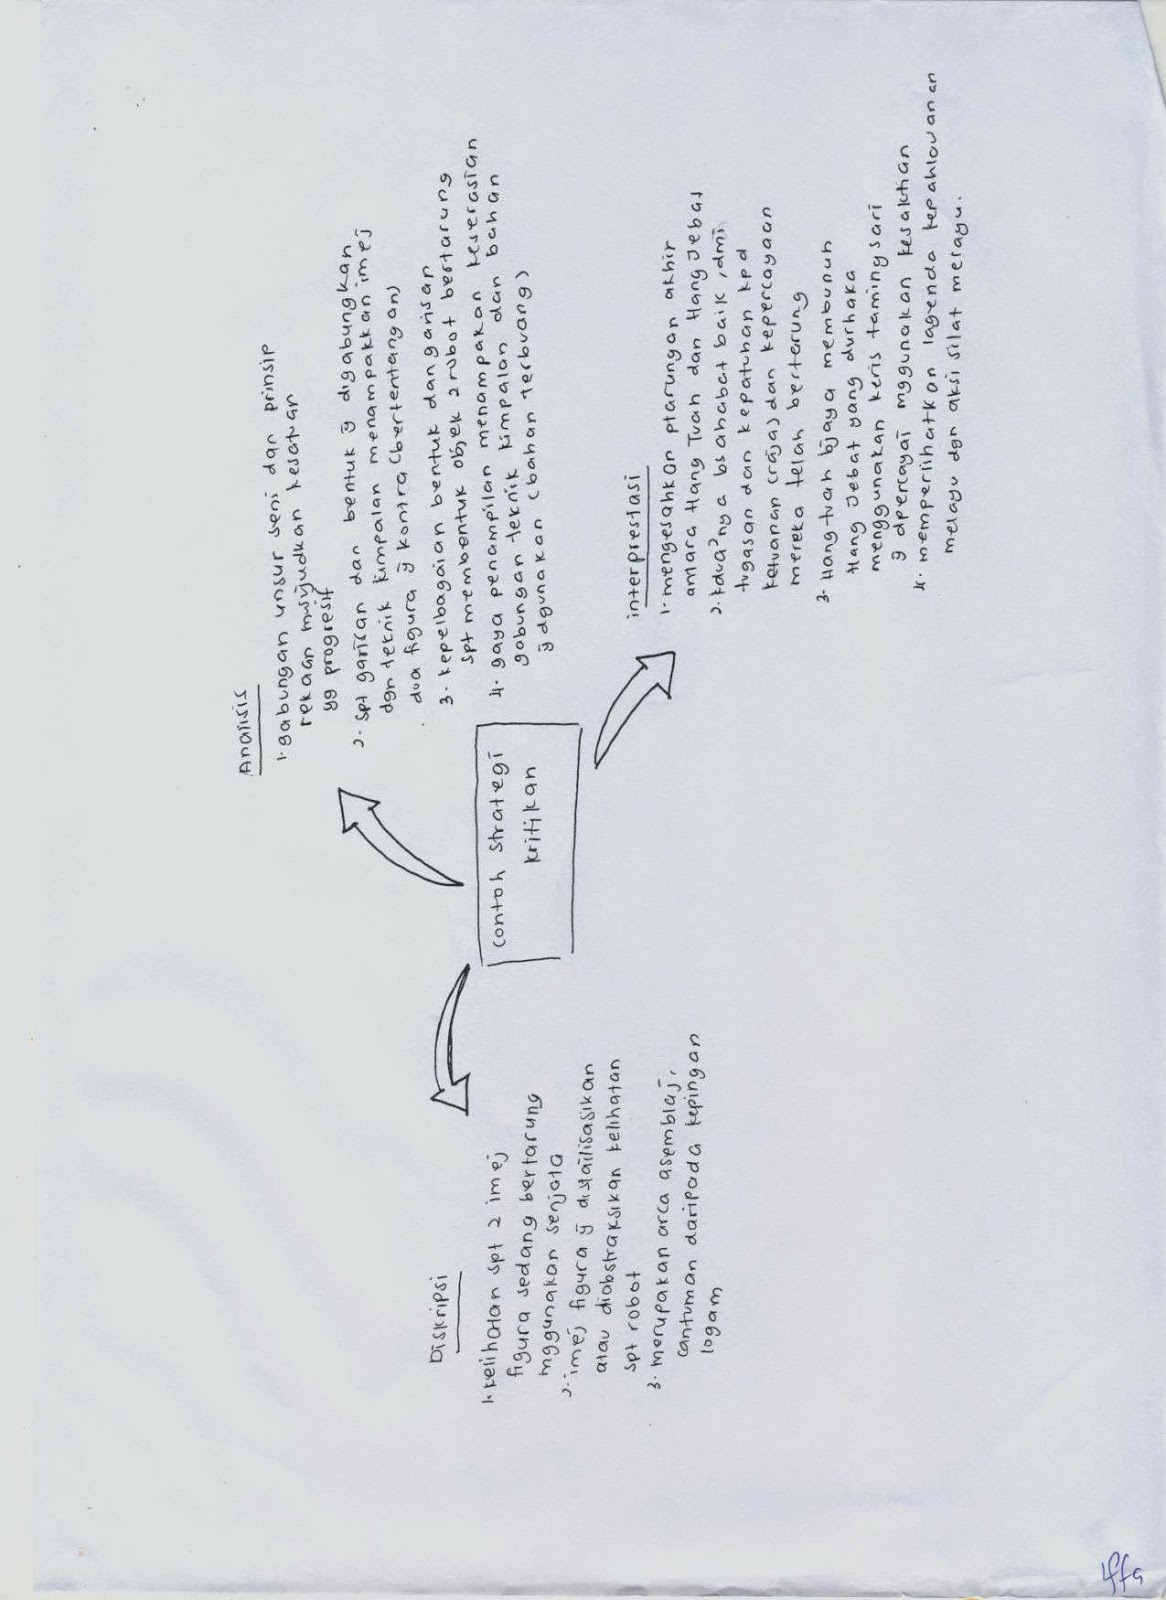 contoh strategi
kritikan
Diskripsi
1. Kelihatan spt 2 imej
figura sedang bertarung
mggunakan senjata
2. imej figura ȳ distailisasikan
atau diabstraksikan kelihatan
spt robot
3. merupakan arca asemblaj,
cantuman daripada kepingan
logam
Analisis
1. gabungan unsur seni dan prinsip
rekaan mujudkan kesatuan
yg progresif
2. spt garisan dan bentuk ȳ digabungkan
dgn teknik kimpalan menampakkan imej
dua figura ȳ kontra (bertentangan)
3. kepelbagaian bentuk dan garisan
spt membentuk objek 2 robot bertarung
4. gaya penampilan menampakan keserasian
gabungan teknik kimpalan dan bahan
ȳ dgunakan (bahan terbuang)
interprestasi
1. mengesahkan ptarungan akhir
antara Hang Tuah dan Hang Jebat
2. kdua²nya bsahabat baik, dmi
tugasan dan kepatuhan kpd
ketuanan (raja) dan kepercayaan
mereka telah bertarung
3. Hang tuah bjaya membunuh
Hang Jebat yang durhaka
menggunakan keris tamingsari
ȳ dpercayai mggunakan kesaktian
4. memperlihatkan lagenda kepahlawanan
melayu dgn aksi silat melayu.